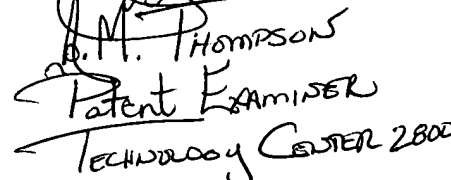 A.M. THOMPSON
Patent EXAMINER
TECHNOLOGY CENTER 2800